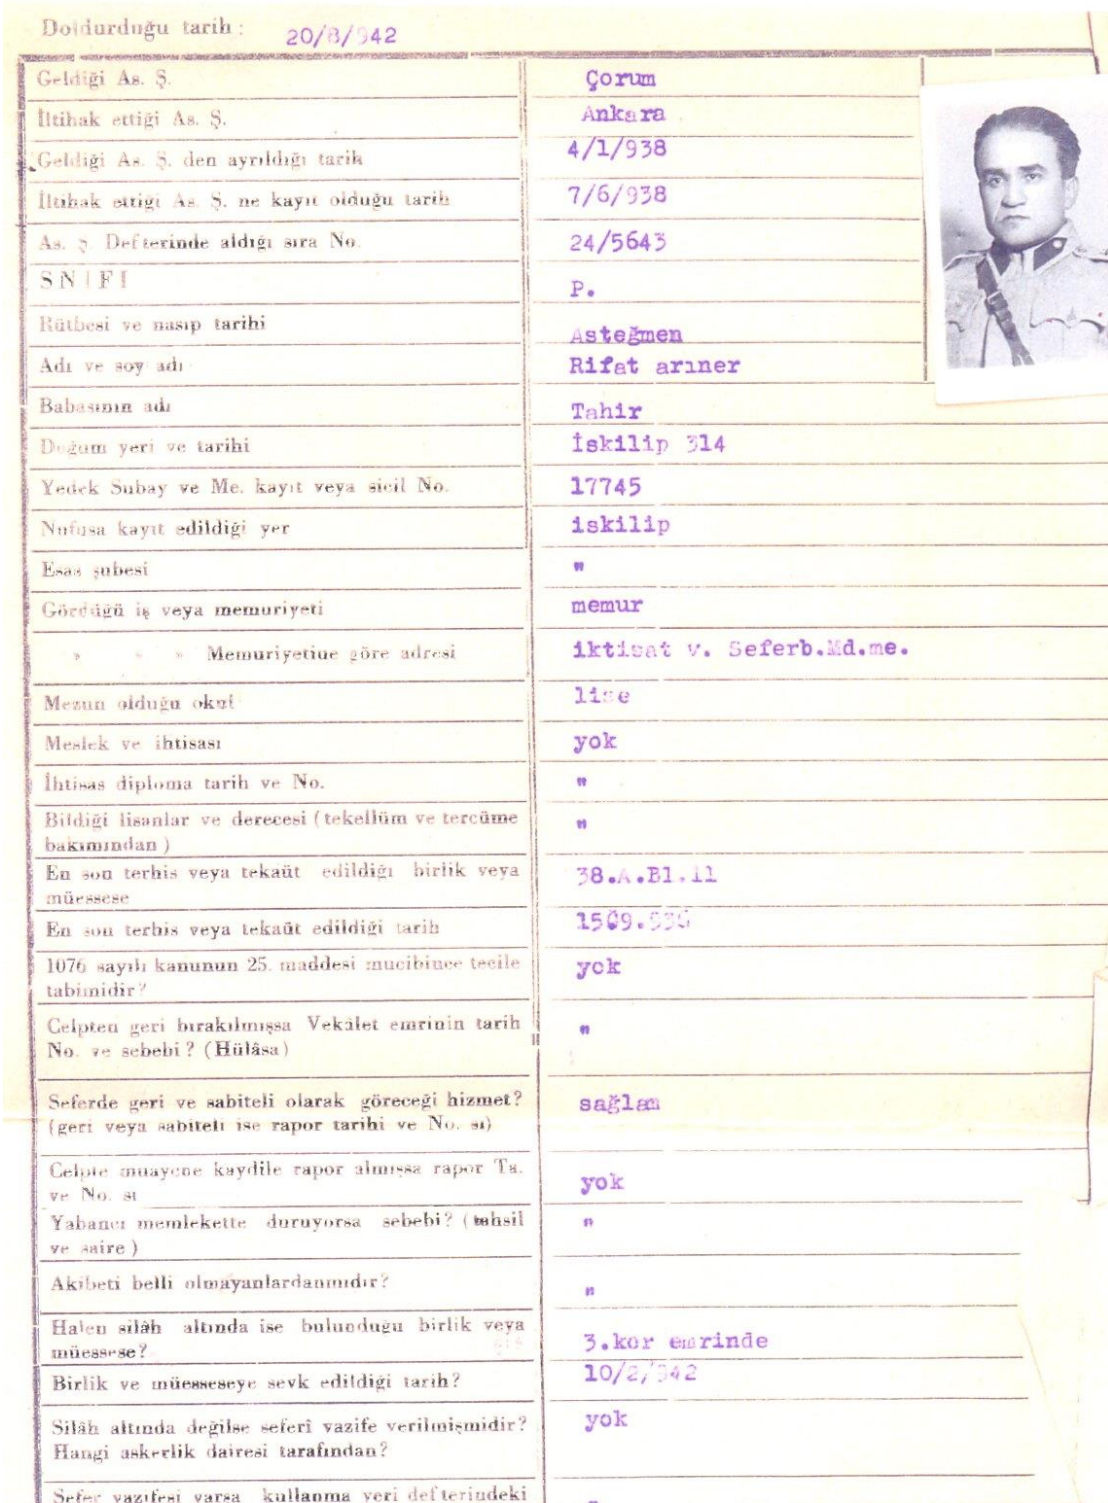 Doldurduğu tarih : 20/8/942
Geldiği As. Ş. Çorum
İltihak ettiği As. Ş. Ankara
Geldiği As. Ş. den ayrıldığı tarih 4/1/938
İltihak ettiği As. Ş. ne kayıt olduğu tarih 7/6/938
As. Ş Defterinde aldığı sıra No. 24/5643
SNIFI P.
Rütbesi ve nasıp tarihi Asteğmen
Adı ve soy adı Rifat arıner
Babasının adı Tahir
Doğum yeri ve tarihi İskilip 314
Yedek Subay ve Me. kayıt veya sicil No. 17745
Nufusa kayıt edildiği yer iskilip
Esas şubesi "
Gördüğü iş veya memuriyeti memur
» » » Memuriyetine göre adresi iktisat v. Seferb.Md.me.
Mezun olduğu okul lise
Meslek ve ihtisası yok
İhtisas diploma tarih ve No. "
Bildiği lisanlar ve derecesi (tekellüm ve tercüme "
bakımından)
En son terhis veya tekaüt edildiği birlik veya 38.A.Bl.11
müessese
En son terhis veya tekaüt edildiği tarih
1076 sayılı kanunun 25. maddesi mucibince tecile yok
tabimidir?
Celpten geri bırakılmışsa Vekâlet emrinin tarih "
No. ve sebebi? (Hülâsa)
Seferde geri ve sabiteli olarak göreceği hizmet? sağlam
(geri veya sabiteli ise rapor tarihi ve No. sı)
Celpte muayene kaydile rapor almışsa rapor Ta. yok
ve No. sı
Yabancı memlekette duruyorsa sebebi? (tahsil "
ve saire)
Akibeti belli olmayanlardanmıdır? "
Halen silâh altında ise bulunduğu birlik veya 3.kor emrinde
müessese?
Birlik ve müesseseye sevk edildiği tarih? 10/2/942
Silâh altında değilse seferî vazife verilmişmidir? yok
Hangi askerlik dairesi tarafından?
Sefer vazifesi varsa kullanma yeri defterindeki "